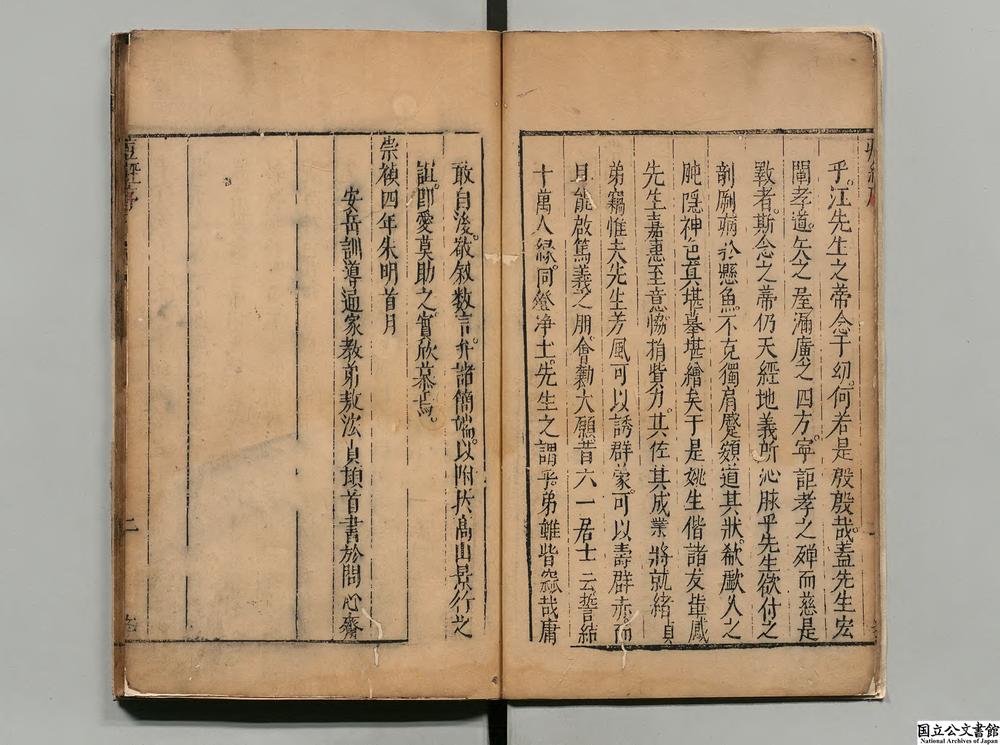 乎江先生之蒂念于幼何若是殷殷哉蓋先生宏
闡孝道矢之屋漏廣之四方寧詎孝之殫而慈是
斁者斯念之蒂仍天經地義所沁脉乎先生欲付之
剞劂病於懸魚不克獨肩蹙頞道其狀欷歔久之
肫隱神色真堪摹堪繪矣于是姚生偕諸友輩感
先生嘉惠至意恊捐貲力其佐其成業將就緒貞
弟竊惟夫先生芳風可以誘群蒙可以壽群赤而
且能啟篤義之朋會勷大願昔六一居士云誓結
十萬人緣同登淨土先生之謂乎弟雖呰窳哉庸
敢自後敬叙數言弁諸簡端以附於高山景行之
誼即愛莫助之實欣慕焉
崇禎四年朱明首月
安岳訓導通家教弟敖浤貞頓首書於問心齋
二
国立公文書館
National Archives of Japan